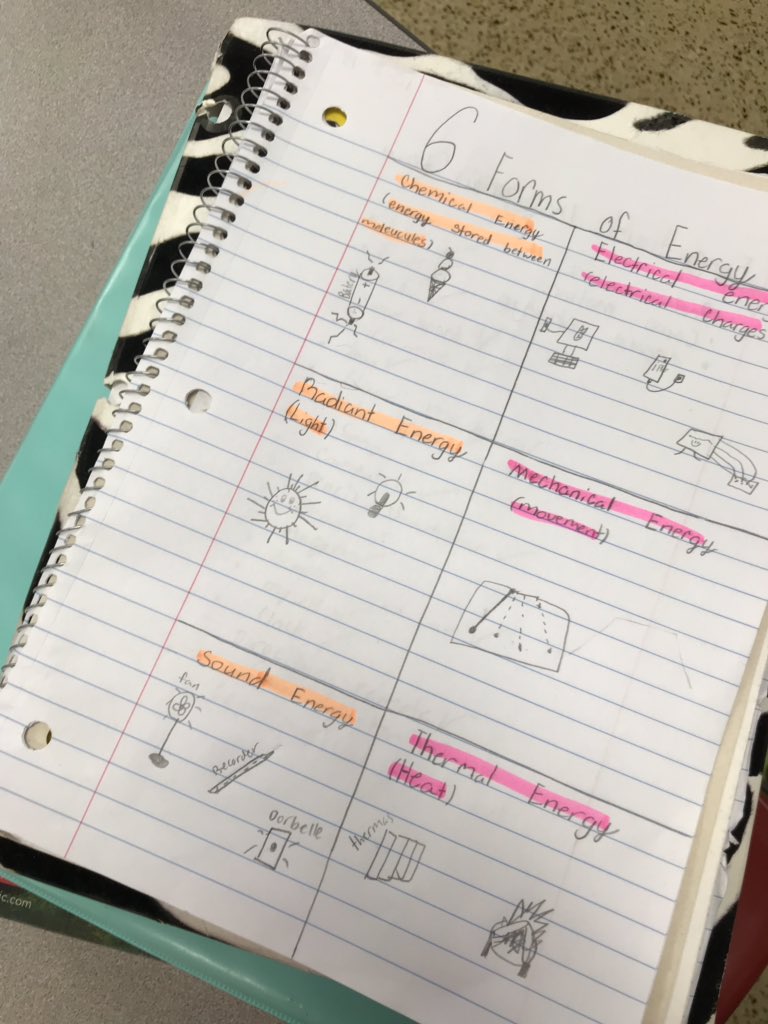 6 Forms of Energy
Chemical Energy
(energy stored between
moleucules)
Electrical energ
(electrical charges
Radiant Energy
(Light)
Mechanical Energy
(movement)
Sound Energy
fan
Recorder
Dorbelle
Thermal Energy
(Heat)
thermas
ic.com